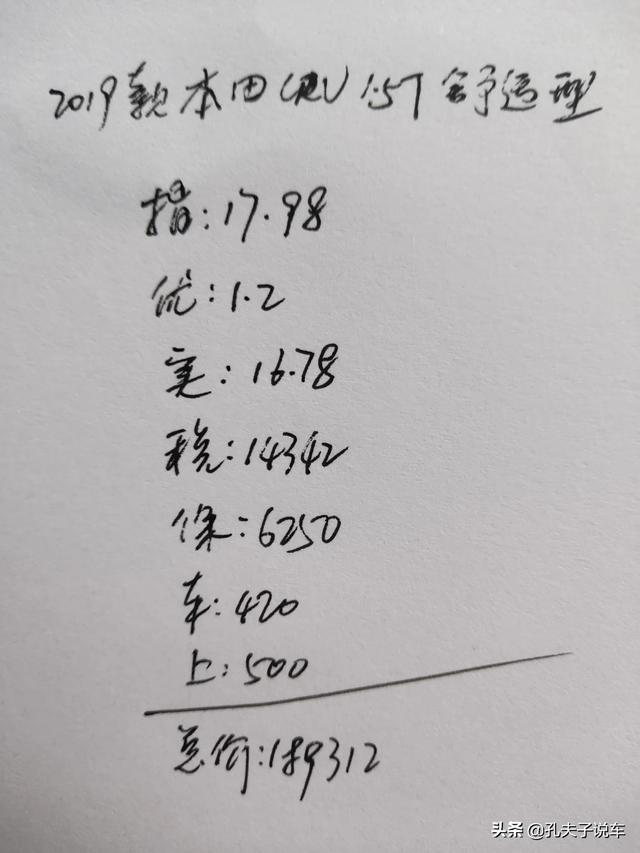 2019款本田CRV 1.5T舒适型
指:17.98
优:1.2
实:16.78
税:14342
保:6250
车:420
上:500
总价:189312
头条 @孔夫子说车